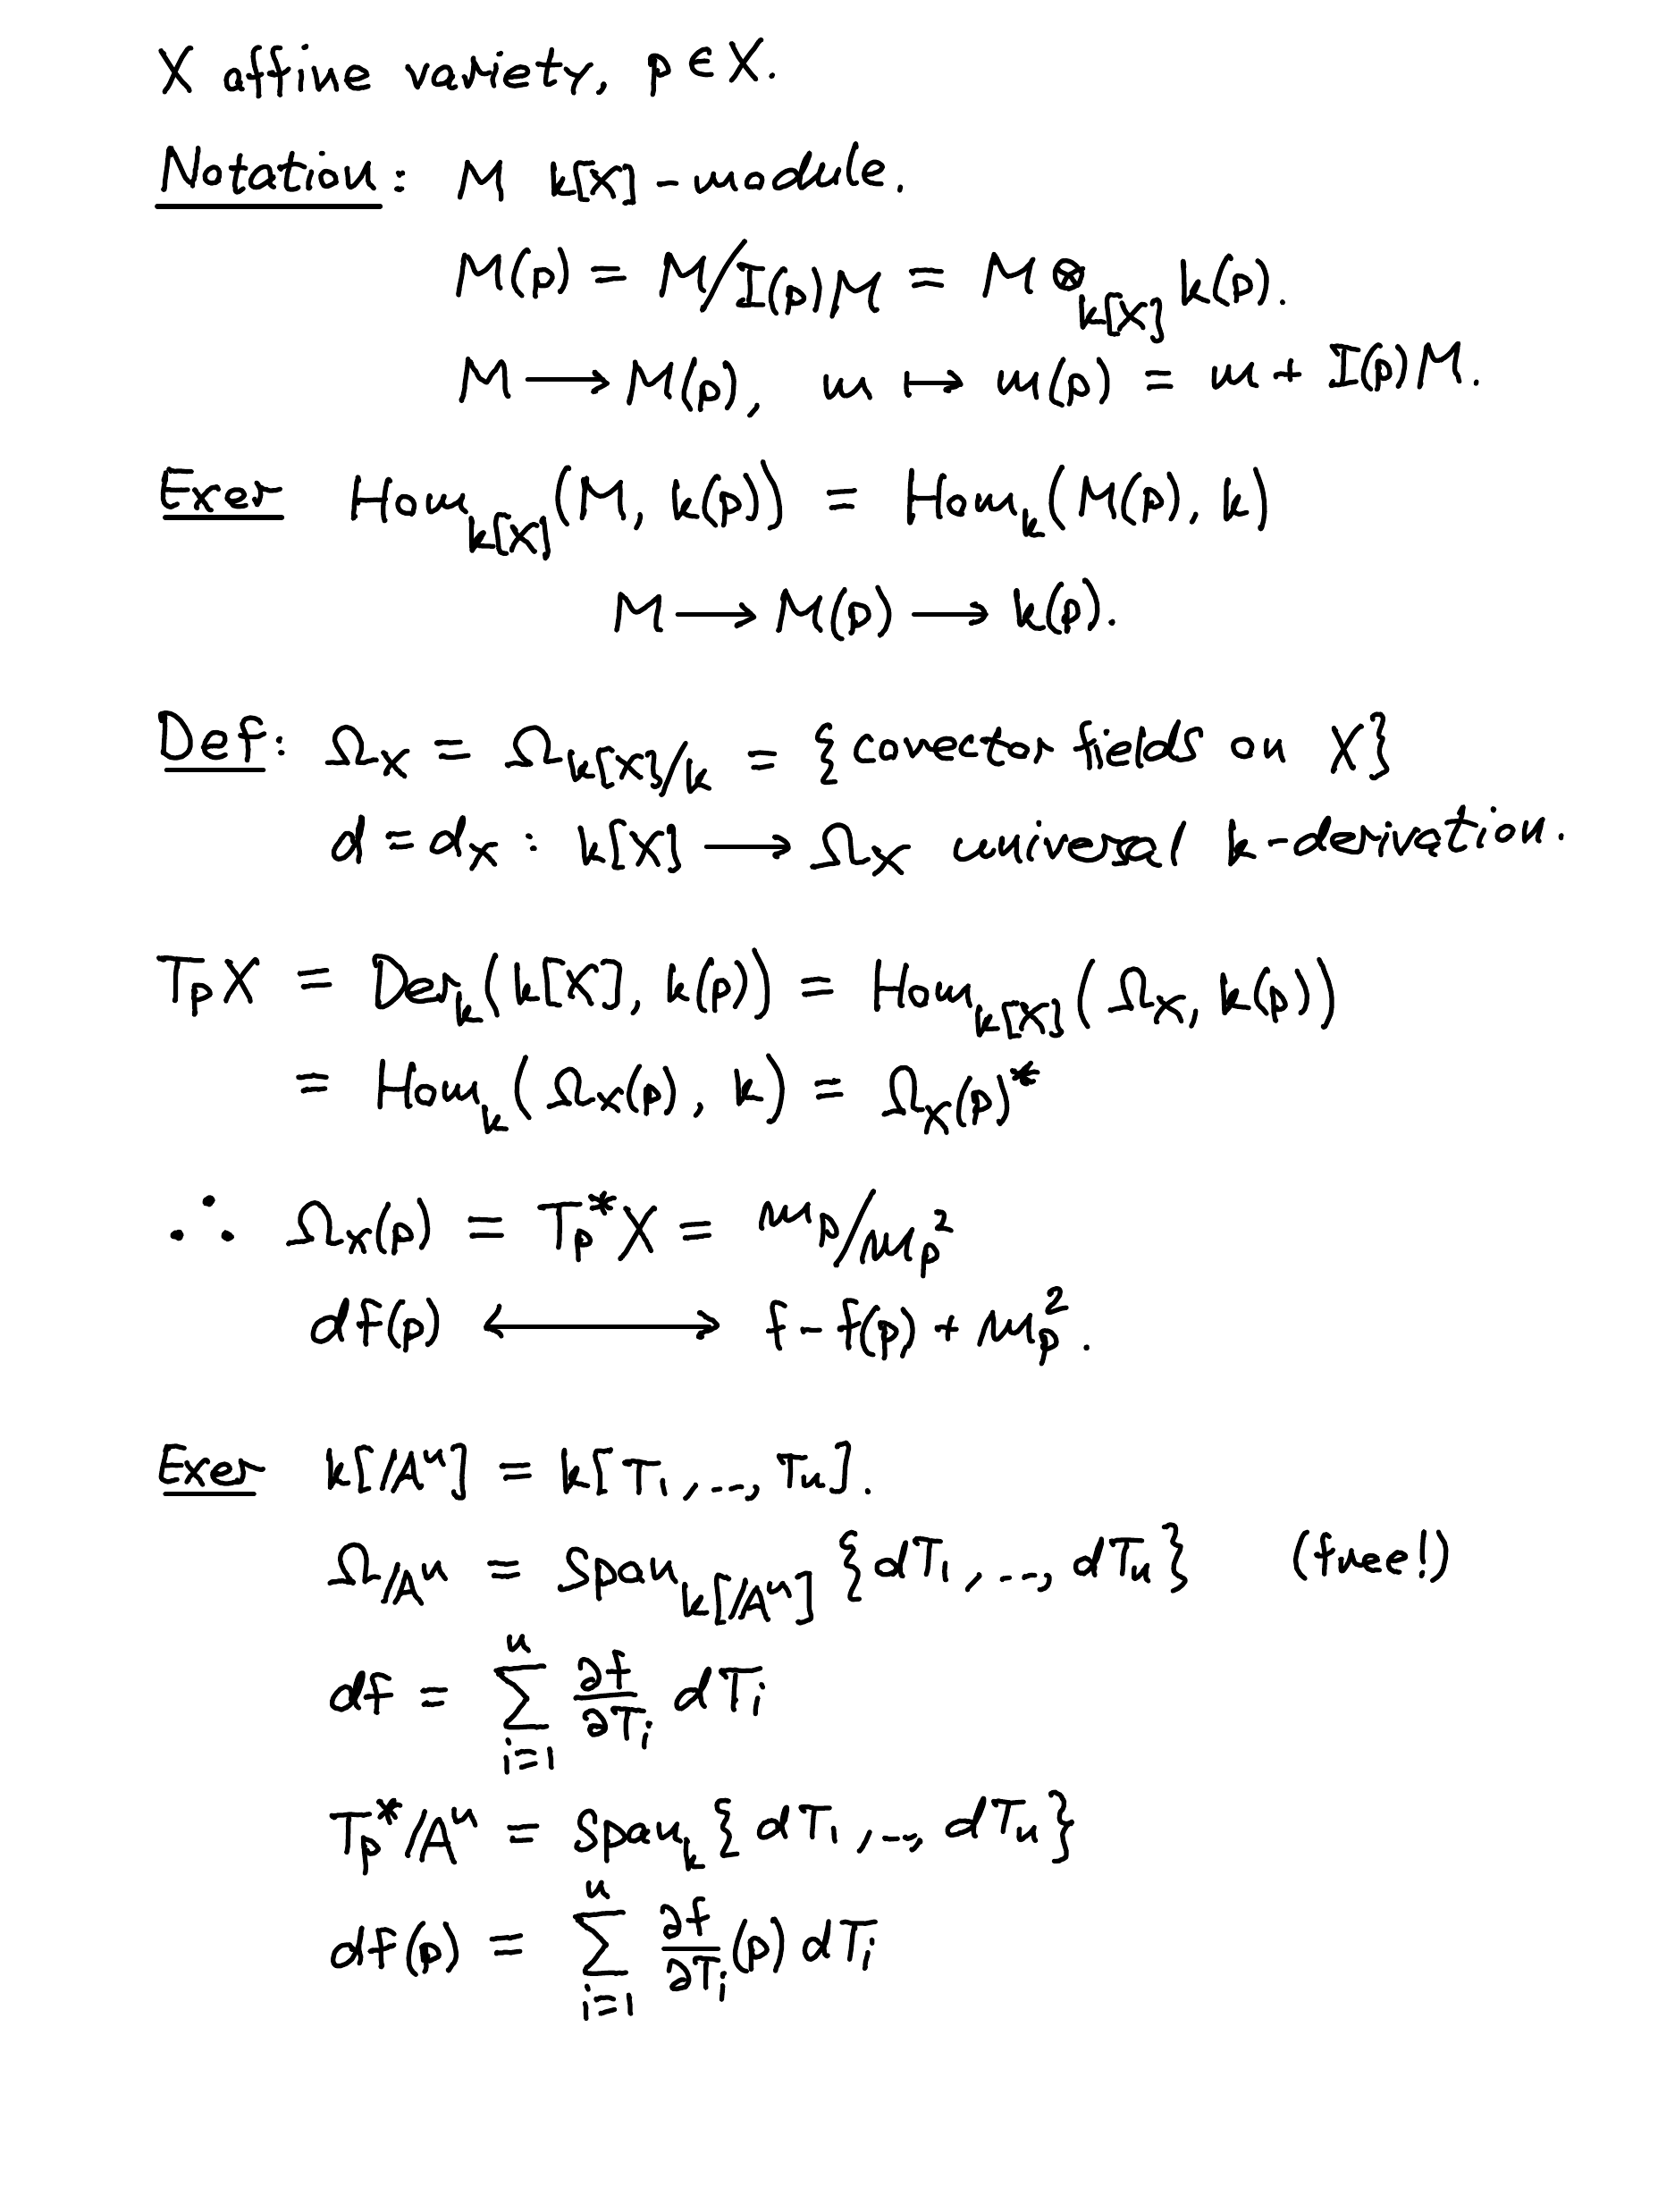 X affine variety, p ∈ X.
Notation: M k[X]-module.
M(p) = M/I(p)M = M ⊗_{k[X]} k(p).
M ⟶ M(p), m ↦ m(p) = m + I(p)M.
Exer Hom_{k[X]}(M, k(p)) = Hom_k(M(p), k)
M ⟶ M(p) ⟶ k(p).
Def: Ω_X = Ω_{k[X]/k} = {covector fields on X}
d = d_X : k[X] ⟶ Ω_X universal k-derivation.
T_p X = Der_k(k[X], k(p)) = Hom_{k[X]}(Ω_X, k(p))
= Hom_k(Ω_X(p), k) = Ω_X(p)^*
∴ Ω_X(p) = T_p^* X = m_p/m_p^2
df(p) ⟷ f - f(p) + m_p^2.
Exer k[𝔸^n] = k[T_1, ..., T_n].
Ω_{𝔸^n} = Span_{k[𝔸^n]} {dT_1, ..., dT_n} (free!)
df = ∑_{i=1}^n ∂f/∂T_i dT_i
T_p^* 𝔸^n = Span_k {dT_1, ..., dT_n}
df(p) = ∑_{i=1}^n ∂f/∂T_i (p) dT_i